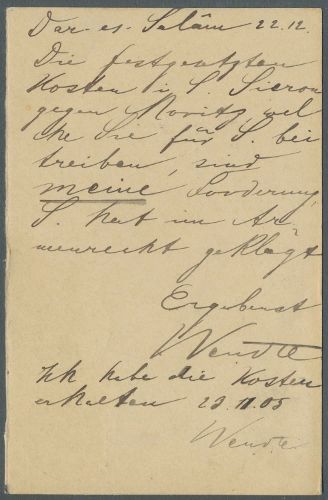 Dar-es-Salâm 22.12.
Die festgesetzten
Kosten i. S. Sieron
gegen Moritz, wel
che Sie für S. bei
treiben, sind
meine Forderung,
S. hat im Ar-
menrecht geklagt
Ergebenst
Wendte
Ich habe die Kosten
erhalten 23.11.05
Wendte